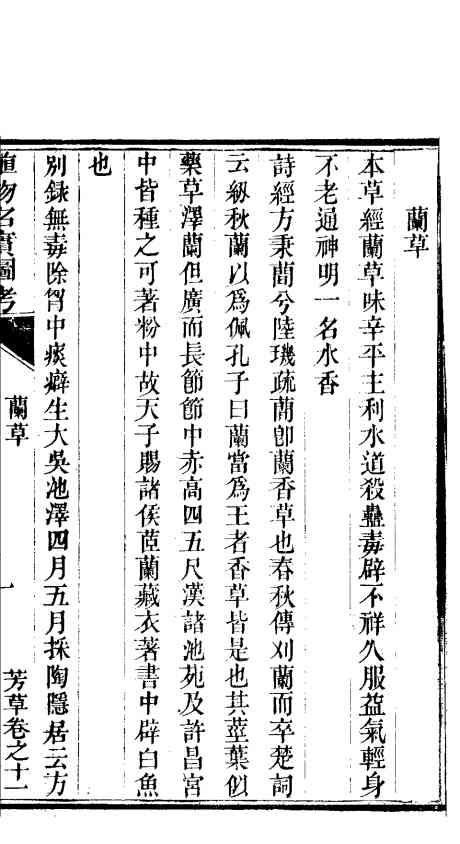 蘭草
本草經蘭草味辛平主利水道殺蠱毒辟不祥久服益氣輕身
不老通神明一名水香
詩經方秉蕑兮陸璣疏蕑卽蘭香草也春秋傳刈蘭而卒楚詞
云紉秋蘭以爲佩孔子曰蘭當爲王者香草皆是也其莖葉似
藥草澤蘭但廣而長節節中赤高四五尺漢諸池苑及許昌宮
中皆種之可著粉中故天子賜諸侯茝蘭藏衣著書中辟白魚
也
別錄無毒除胷中痰癖生大吳池澤四月五月採陶隱居云方
植物名實圖考
蘭草
一
芳草卷之十一